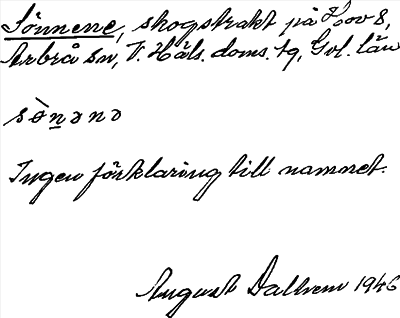 Sönnene, skogstrakt på Hov 8,
Arbrå sn, V. Häls. doms. tg, Gvl. län
sə̀nənə
Ingen förklaring till namnet.
August Dalhem 1946